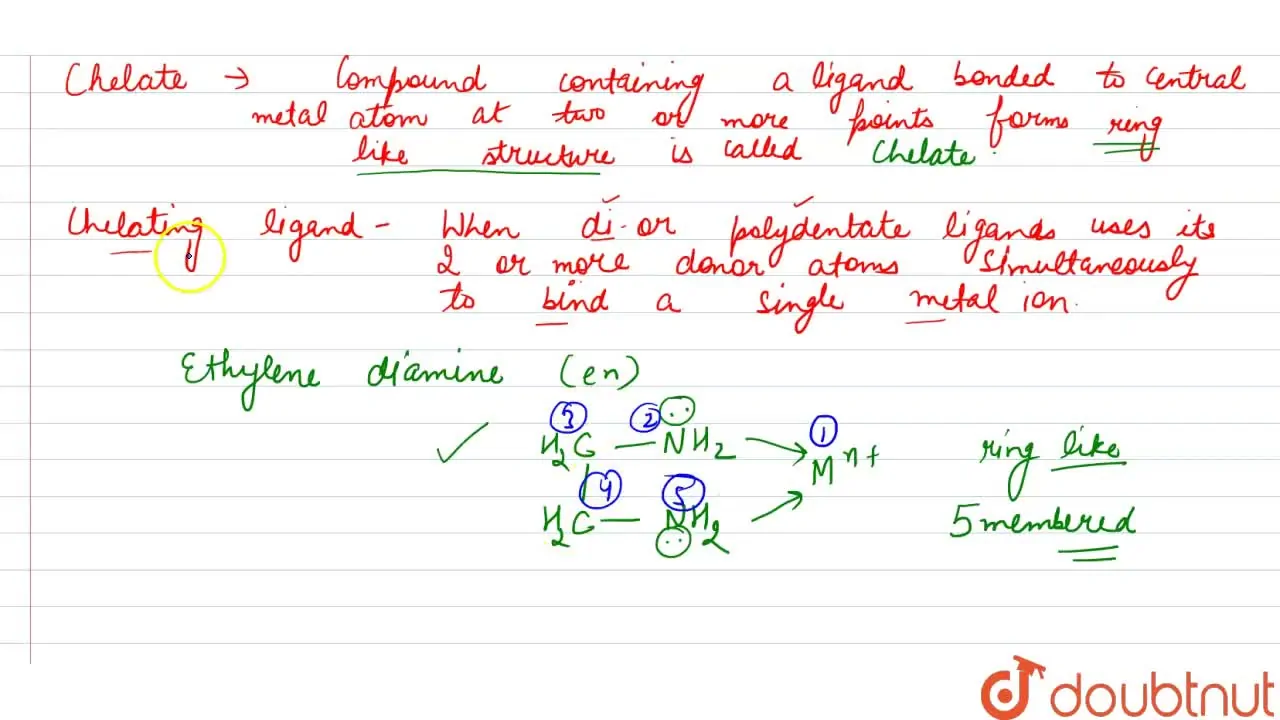 Chelate → Compound containing a ligand bonded to central
metal atom at two or more points forms ring
like structure is called Chelate.
Chelating ligand - When di-or polydentate ligands uses its
2 or more donor atoms simultaneously
to bind a single metal ion.
Ethylene diamine (en)
3 2 1
H2C — NH2 → M n+ ring like
4 5
H2C — NH2 → 5 membered
doubtnut